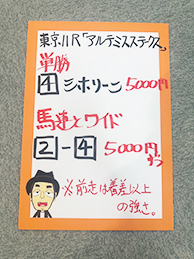 東京11R「アルテミスステークス」
単勝
4 シホリーン 5000円
馬連とワイド
2-4 5000円ずつ
※前走は着差以上
の強さ。